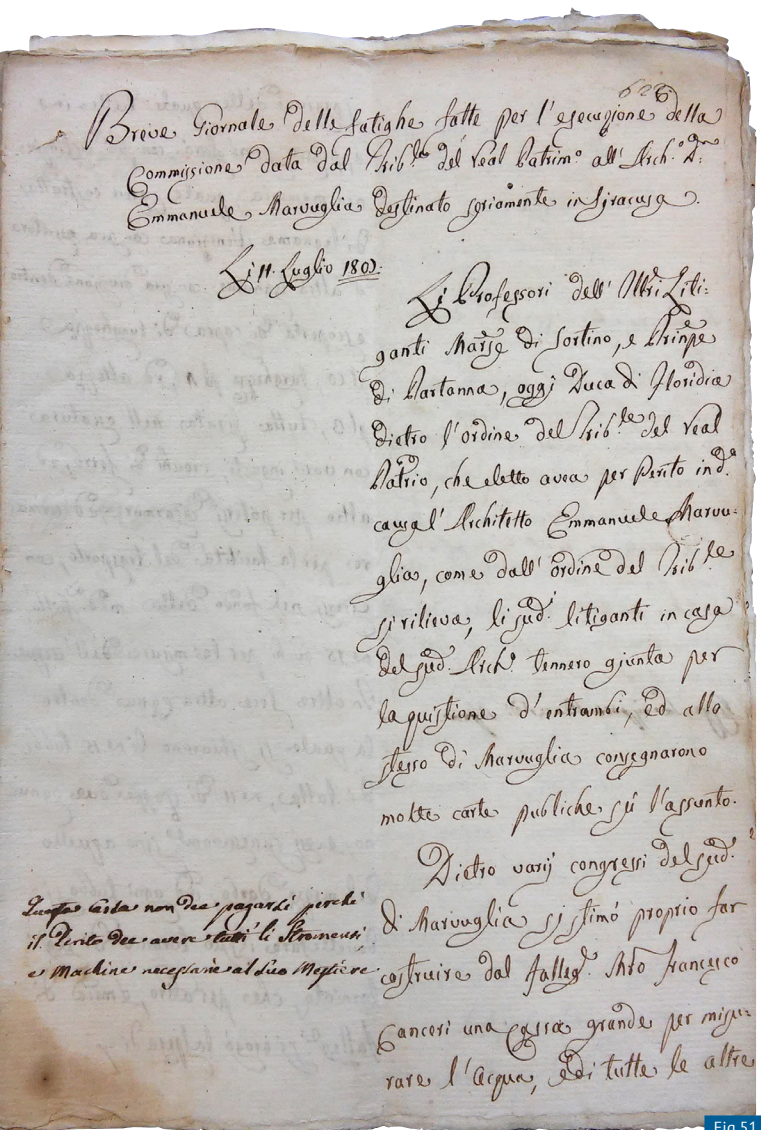 Breve Giornale delle fatighe fatte per l'esecuzione della
Commissione data dal Trib.le del Real Patrim.o all'Arch.o D.n
Emmanuele Marvuglia destinato seriamente in Siracusa.
Li 11. Luglio 180
Li Professori dell' Ill.ri Liti-
ganti Mar.se di Sortino, e Prin.pe
di Partanna, oggi Duca di Floridia
dietro l'ordine del Trib.le del Real
Pat.rio, che eletto avea per Perito in d.a
causa l'Architetto Emmanuele Marvu-
glia, come dall'ordine del Trib.le
si rilieva, li sud.i litiganti in casa
del sud. Arch.o tennero giunta per
la quistione d'entrambi, ed allo
stesso di Marvuglia consegnarono
molte carte publiche sù l'assunto.
Dietro varij congressi del sud.o
di Marvuglia si stimò proprio far
costruire dal falleg.e M.ro Francesco
Canceri una Cassa grande per misu-
rare l'acqua, e di tutte le altre
Questa Cassa non dee pagarsi perché
il Perito dee avere tutti li Stromenti,
e Machine necessarie al suo Mestiere
Fig.51